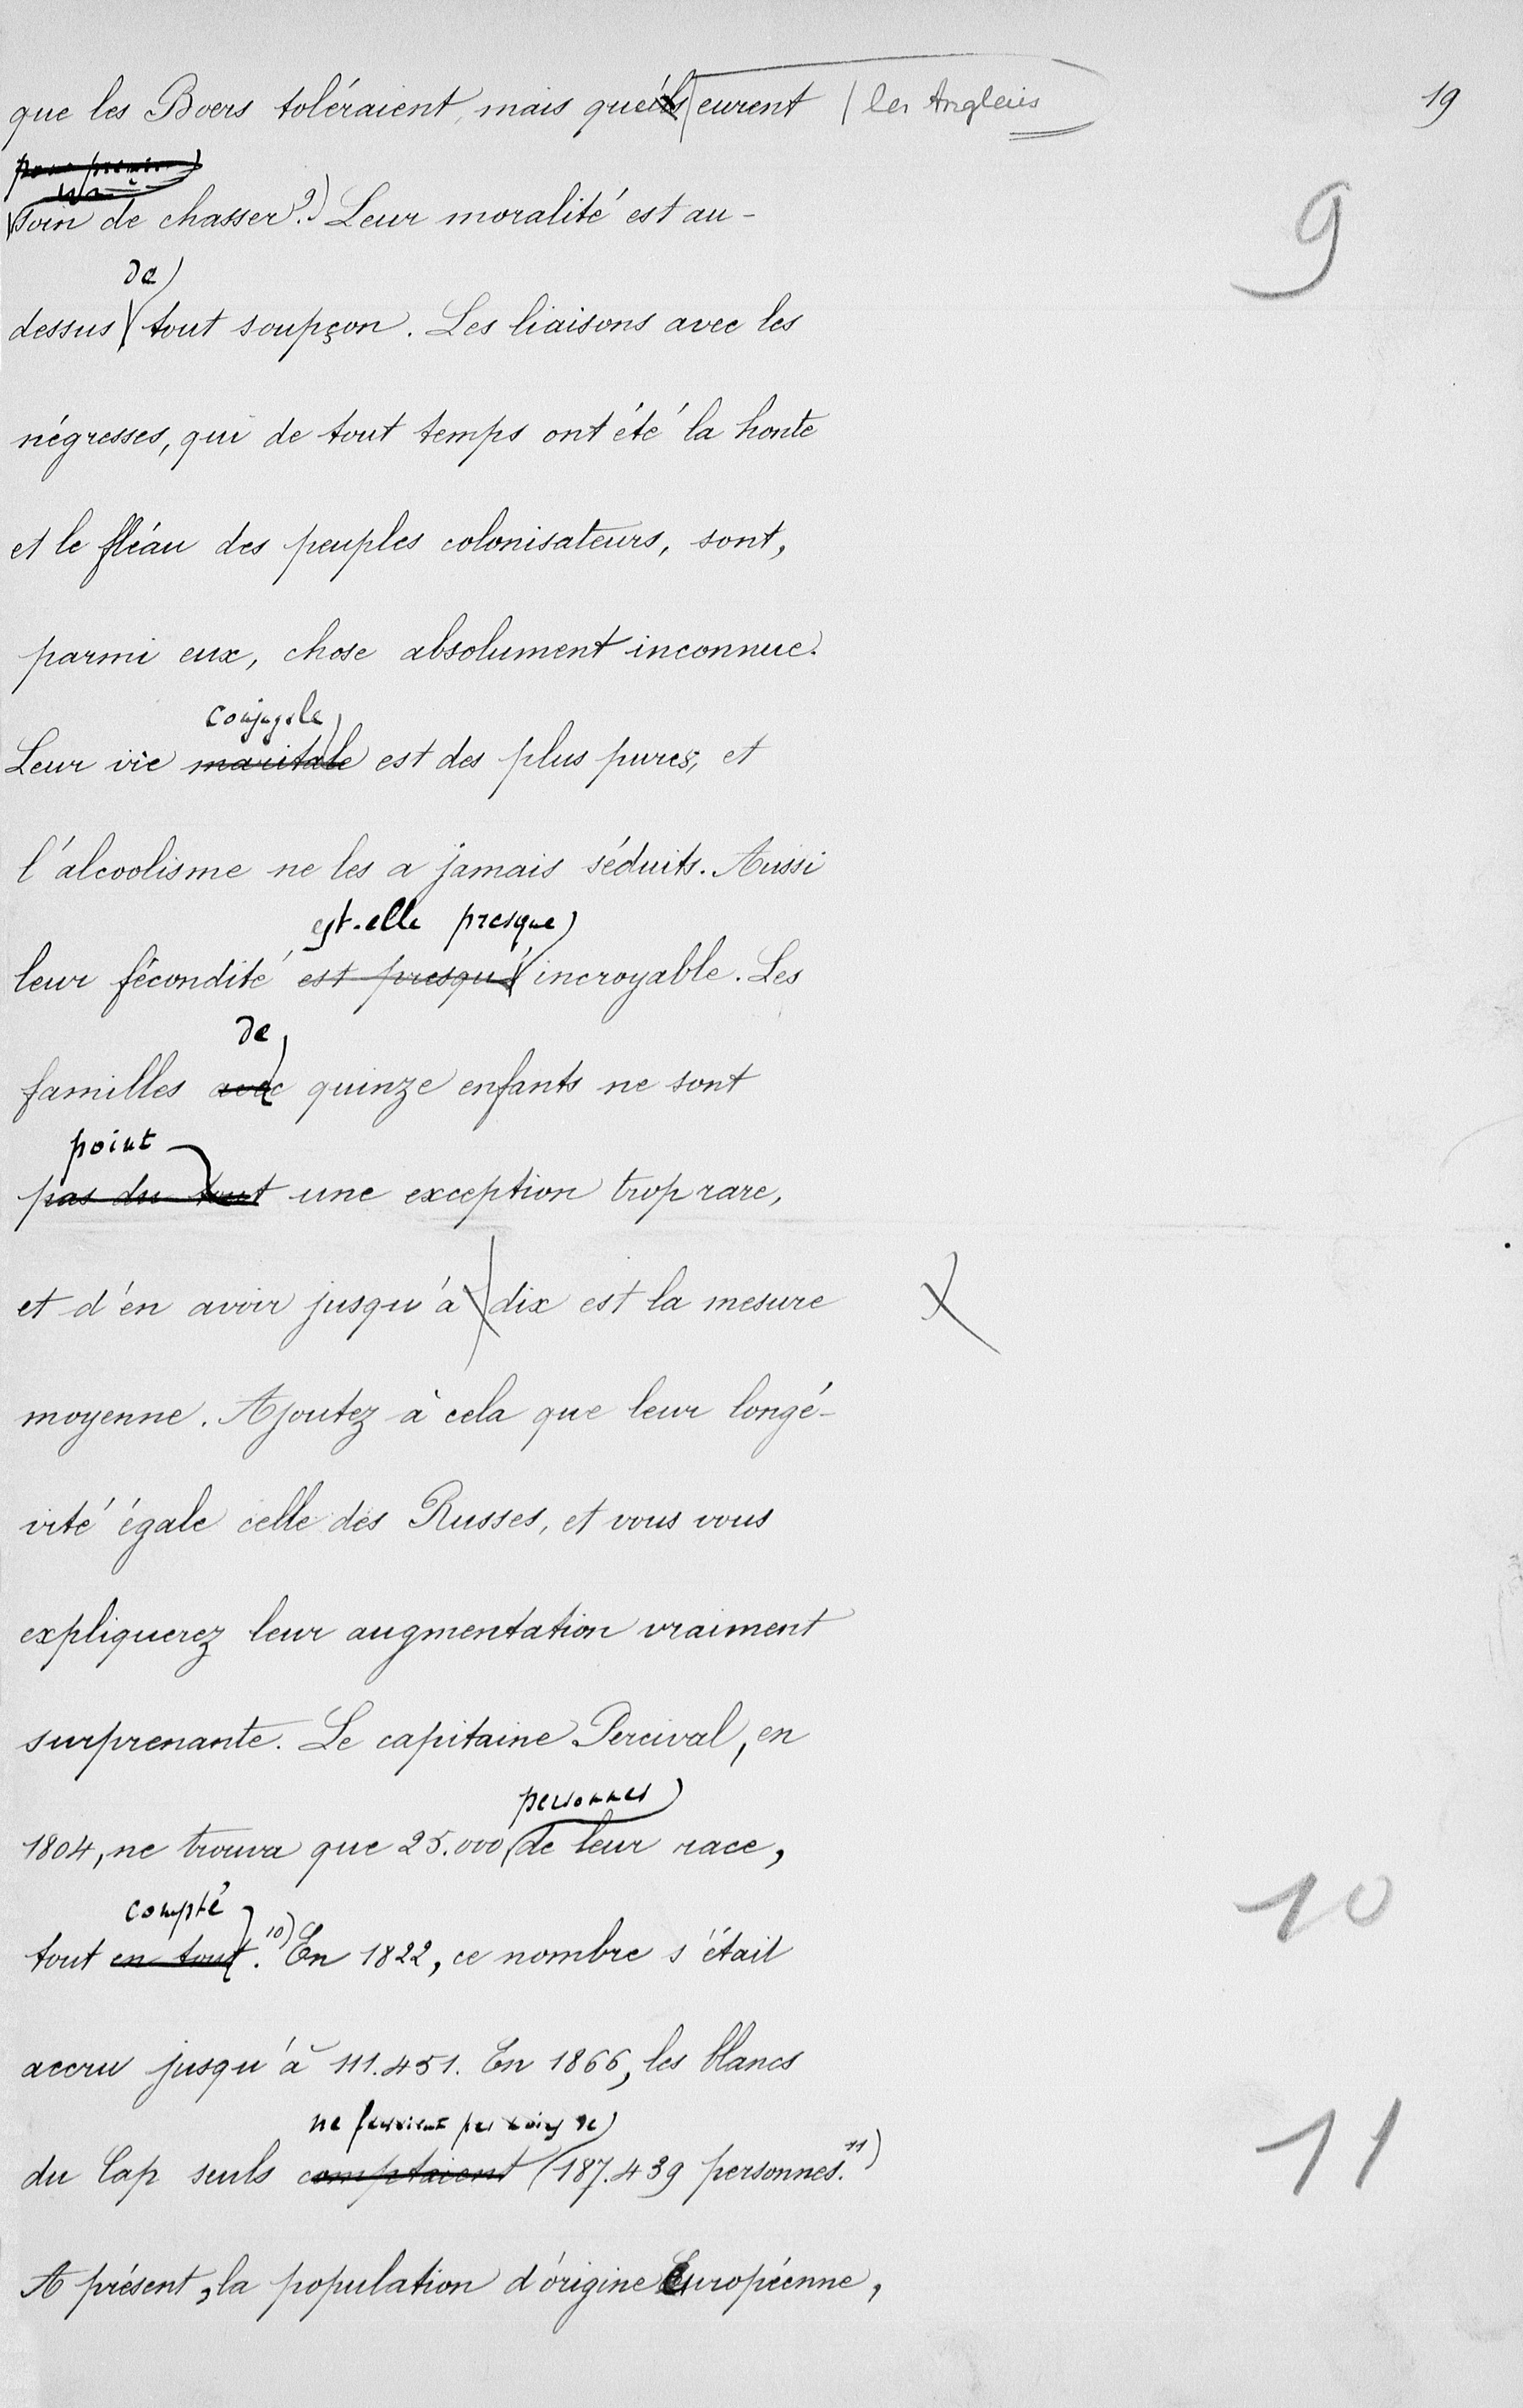 19
que les Boers toléraient, mais qu'ils eurent / les Anglais
soin de chasser.9) Leur moralité est au-
9
de
dessus tout soupçon. Les liaisons avec les
négresses, qui de tout temps ont été la honte
et le fléau des peuples colonisateurs, sont,
parmi eux, chose absolument inconnue.
conjugale
Leur vie maritale est des plus pures, et
l'alcoolisme ne les a jamais séduits. Aussi
est-elle presque
leur fécondité est presqu' incroyable. Les
de
familles avec quinze enfants ne sont
point
pas du tout une exception trop rare,
et d'en avoir jusqu'à dix est la mesure
moyenne. Ajoutez à cela que leur longé-
vité égale celle des Russes, et vous vous
expliquerez leur augmentation vraiment
surprenante. Le capitaine Percival, en
personnes
1804, ne trouva que 25.000 de leur race,
compté
10
tout en tout.10) En 1822, ce nombre s'était
accru jusqu'à 111.451. En 1866, les blancs
ne
11
du Cap seuls comptaient 187.439 personnes.11)
A présent, la population d'origine Européenne,